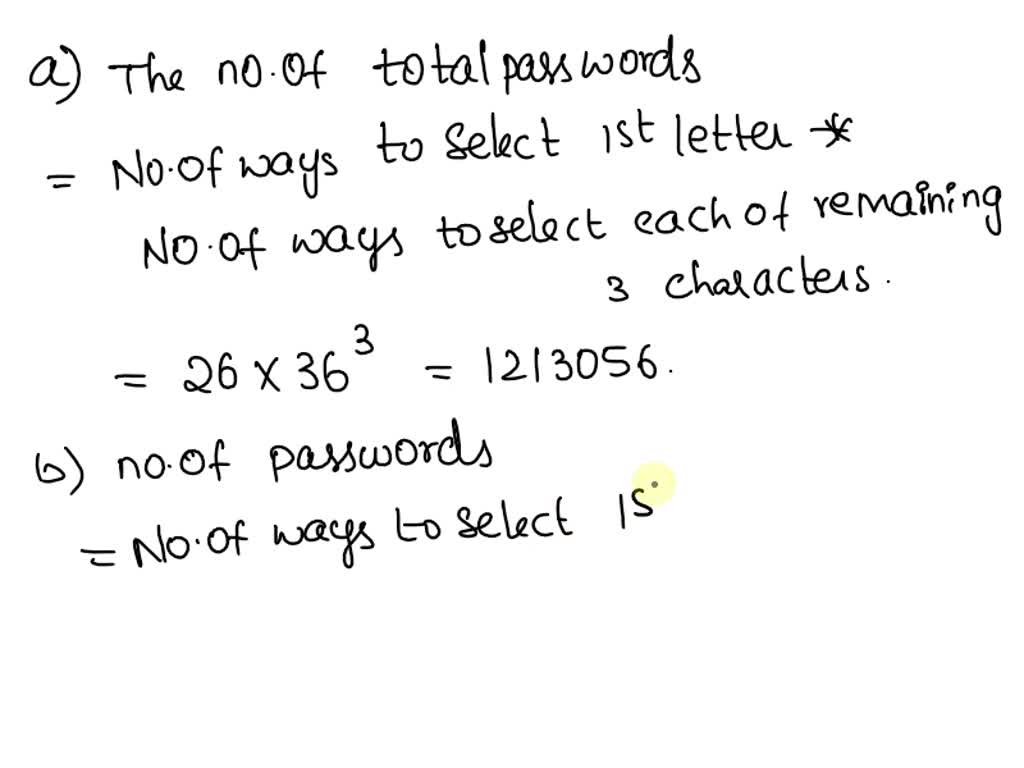 a) The no.of total passwords
= No.of ways to select 1st letter *
No.of ways to select each of remaining
3 characters.
= 26 × 36³ = 1213056.
b) no.of passwords
= No.of ways to select 1s